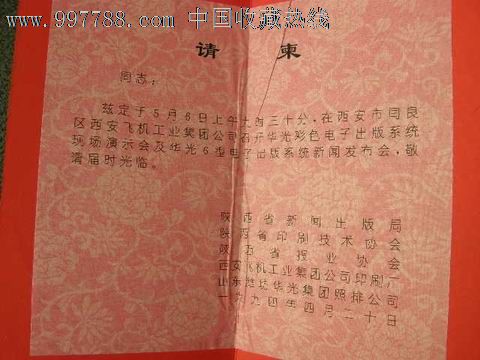 www.997788.com 中国收藏热线
请 柬
同志：
兹定于5月6日上午九时三十分，在西安市阎良
区西安飞机工业集团公司召开华光彩色电子出版系统
现场演示会及华光6型电子出版系统新闻发布会，敬
请届时光临。
陕西省新闻出版局
陕西省印刷技术协会
陕西省报业协会
西安飞机工业集团公司印刷厂
山东潍坊华光集团照排公司
一九九四年四月二十日